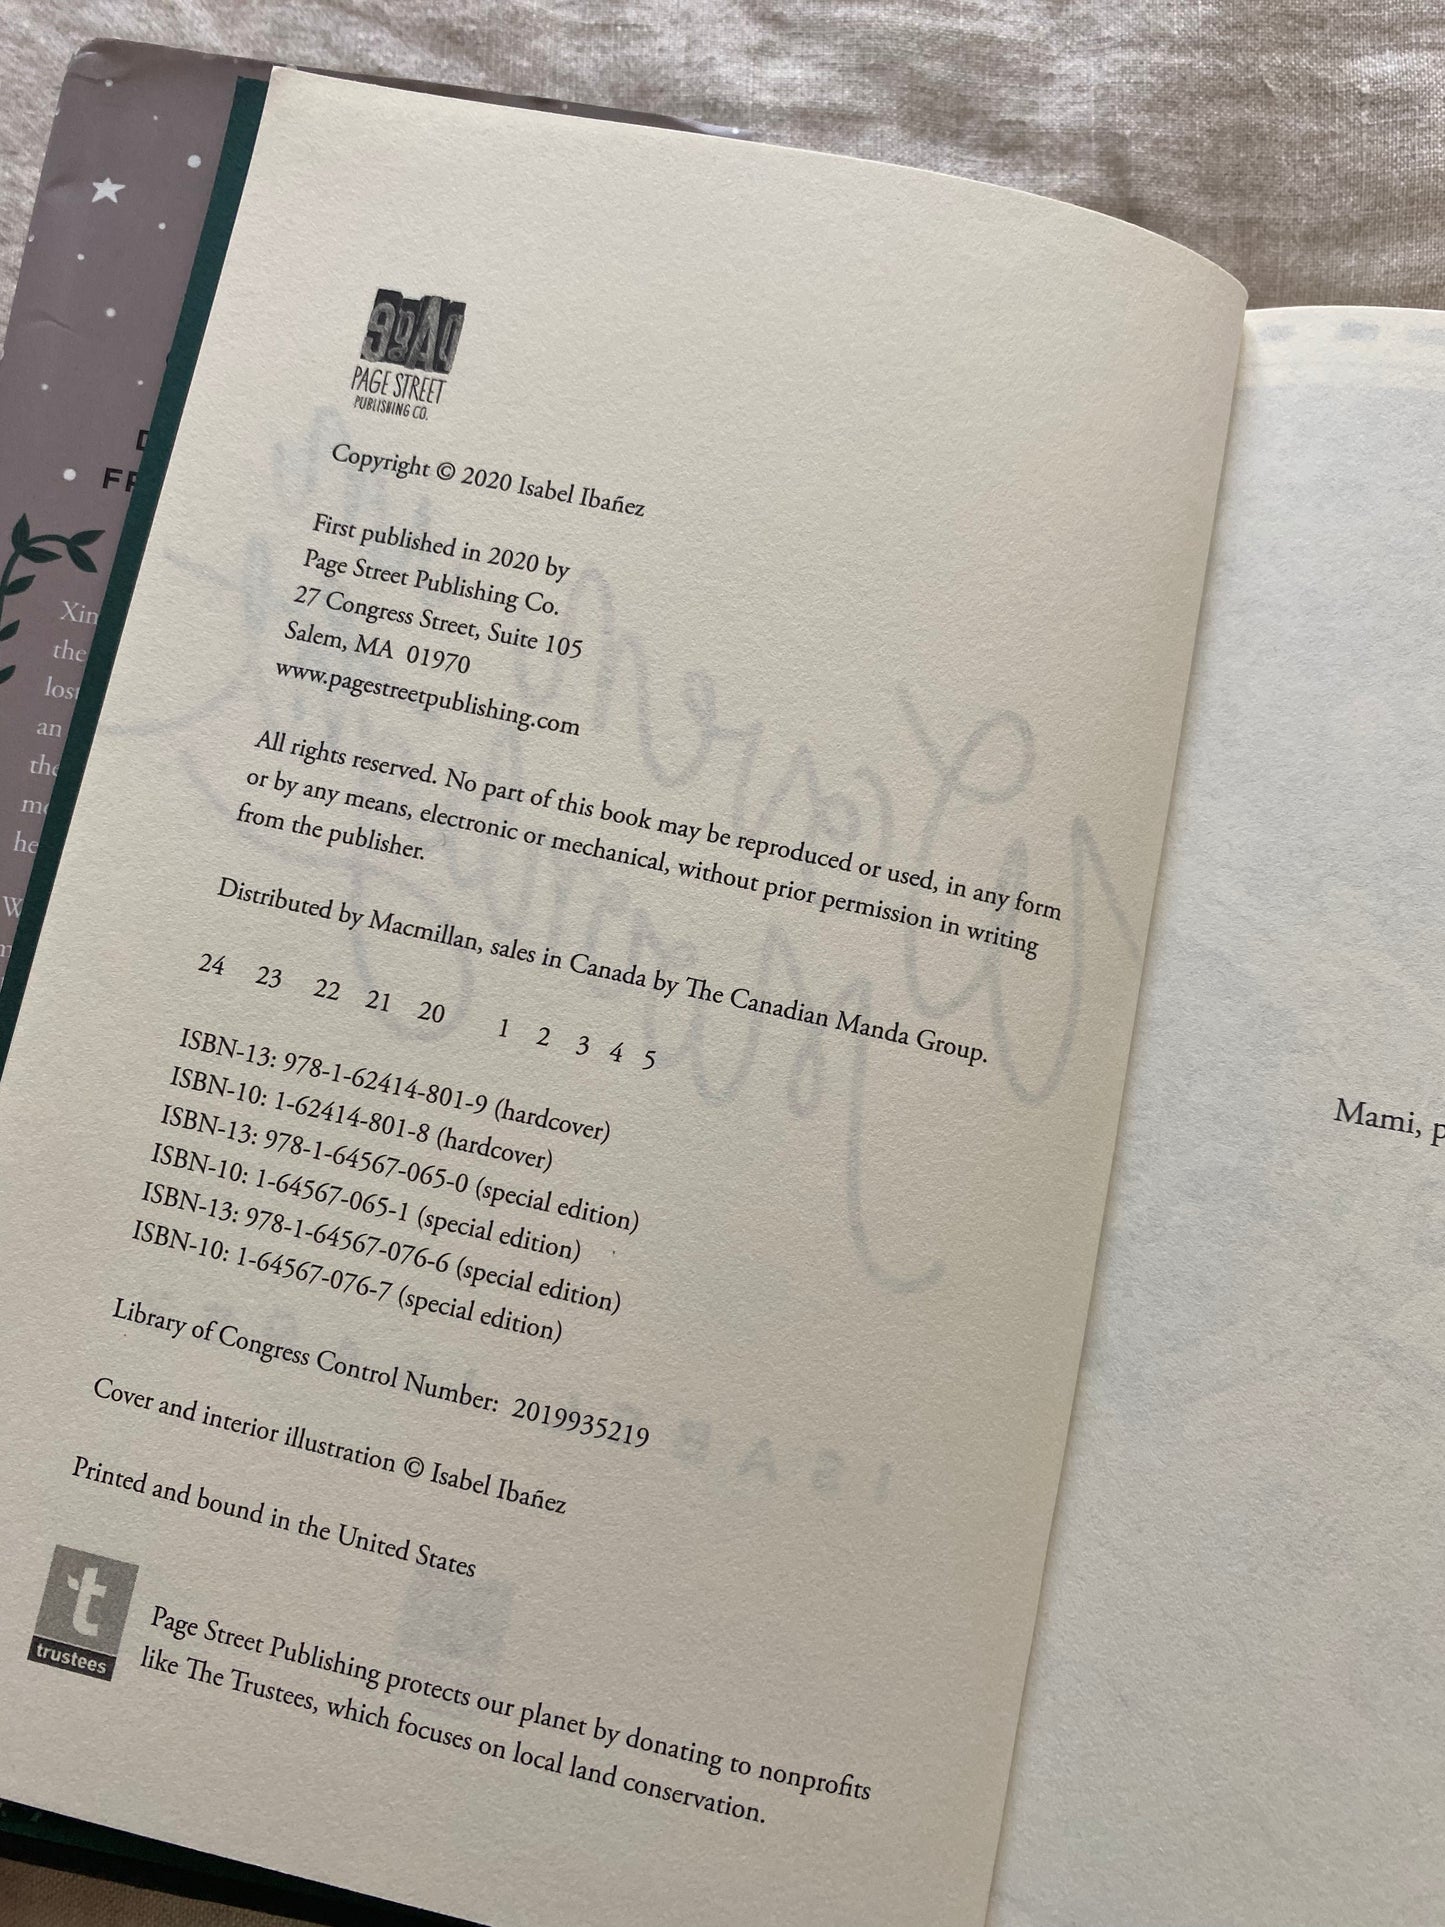 PAGE STREET
PUBLISHING CO.
Copyright © 2020 Isabel Ibañez
First published in 2020 by
Page Street Publishing Co.
27 Congress Street, Suite 105
Salem, MA 01970
www.pagestreetpublishing.com
All rights reserved. No part of this book may be reproduced or used, in any form
or by any means, electronic or mechanical, without prior permission in writing
from the publisher.
Distributed by Macmillan, sales in Canada by The Canadian Manda Group.
24 23 22 21 20 1 2 3 4 5
ISBN-13: 978-1-62414-801-9 (hardcover)
ISBN-10: 1-62414-801-8 (hardcover)
ISBN-13: 978-1-64567-065-0 (special edition)
ISBN-10: 1-64567-065-1 (special edition)
ISBN-13: 978-1-64567-076-6 (special edition)
ISBN-10: 1-64567-076-7 (special edition)
Library of Congress Control Number: 2019935219
Cover and interior illustration © Isabel Ibañez
Printed and bound in the United States
t
trustees
Page Street Publishing protects our planet by donating to nonprofits
like The Trustees, which focuses on local land conservation.
Mami, p
the
lost
an
the
he